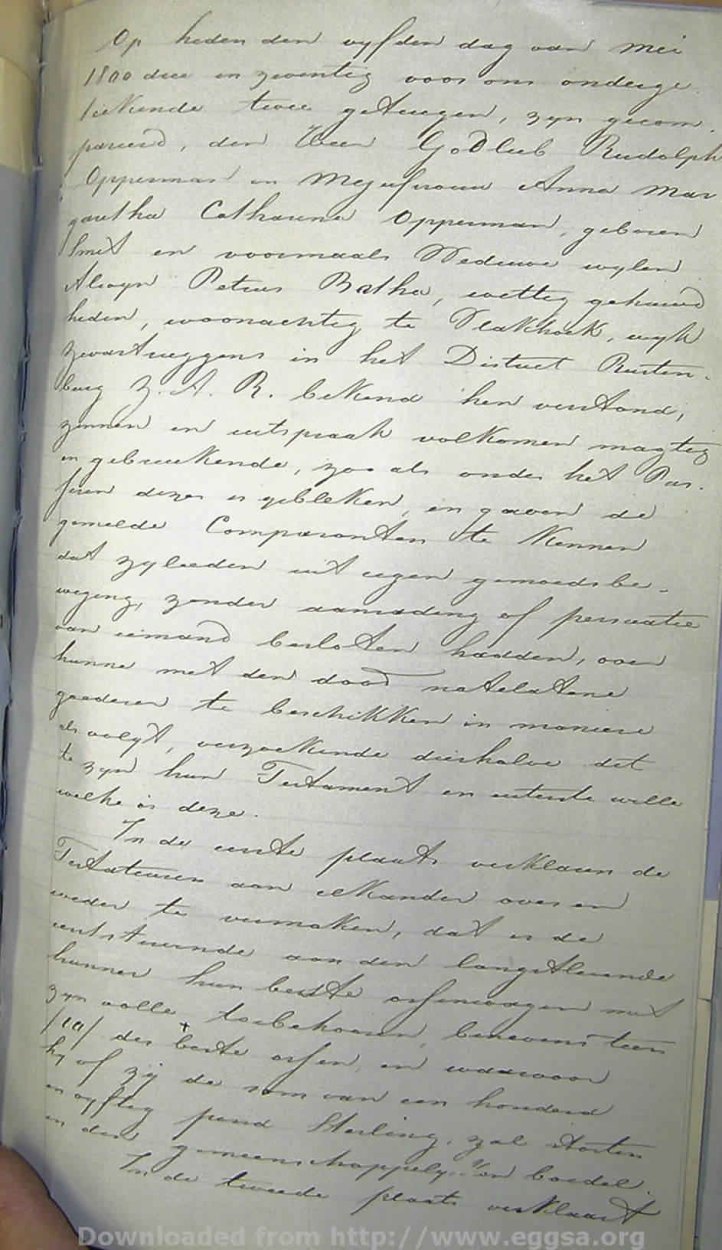 Op heden den vyfden dag van Mei
1800 drie en zeventig voor ons onderge-
teekende twee getuigen, zyn gecom-
pareerd, den Heer Godlieb Rudolph
Opperman en Mejufvrouw Anna Mar
garetha Catharina Opperman, geboren
Smit en voormaals Weduwe wylen
Alwyn Petrus Botha, wettig gehuwd
heden, woonachtig te Vlakhoek, wyk
Zwartruggens in het District Rusten-
burg Z. A. R. bekend hen verstand,
zinnen en uitspraak volkomen magtig
en gebruikende, zoo als onder het Pas-
seren dezer is gebleken, en gaven de
gemelde Comparanten te Kennen
dat zylieden uit eigen gemoedsbe-
weging, zonder aanrading of persuatie
van iemand besloten hadden, over
hunne met den dood natelatene
goederen te beschikken in maniere
als volgt, verzoekende dierhalve dit
te zyn hun Testament en uiterste wille
welke is deze.
In de eerste plaats verklaren de
Testateuren aan elkander over en
weder te vermaken, dat is de
eerststervende aan den langstlevende
hunner hun beste ossenwagen met
zyn volle toebehooren, benevens tien
/10/ der beste ossen, en waarvoor
hy of zij de som van een honderd
en vyftig pond Sterling, zal storten
in den gemeenschappelyken boedel.
In de tweede plaats verklaart
Downloaded from http://www.eggsa.org